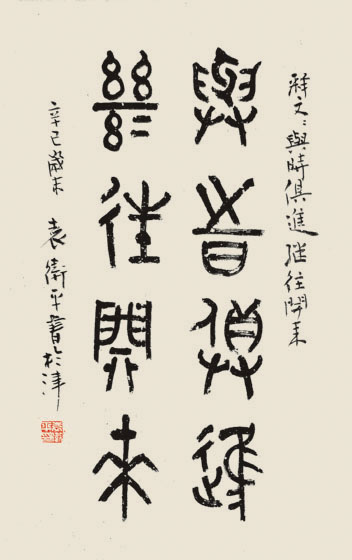 释文：與時俱進继往開来
與時俱進
繼往開來
辛巳歲末
袁衛平書於津